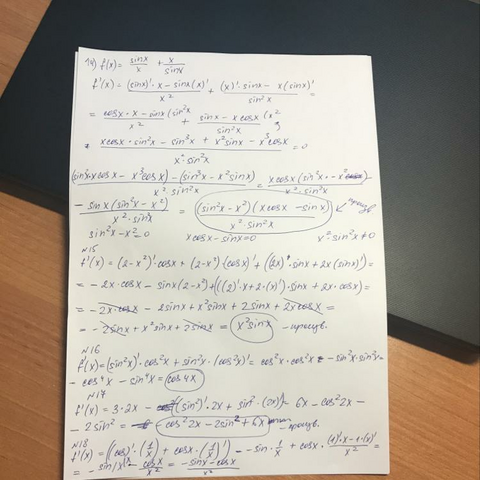 14) f(x) = sinx/x + x/sinx
f'(x) = ((sinx)'·x - sinx(x)')/x² + ((x)'·sinx - x(sinx)')/sin²x =
= (cosx·x - sinx (sin²x)/x² + (sinx - xcosx (x²)/sin²x
= (xcosx·sin²x - sin³x + x²sinx - x³cosx)/(x²·sin²x) = 0
((sin²x·xcosx - x³cosx) - (sin³x - x²sinx))/(x²·sin²x) = xcosx(sin²x - x²)/(x²·sin²x)
- sinx(sin²x - x²)/(x²·sin²x) = (sin²x - x²)(xcosx - sinx)/(x²·sin²x)
sin²x - x² = 0 xcosx - sinx = 0 x²sin²x ≠ 0
N15
f'(x) = (2-x²)'·cosx + (2-x²)·(cosx)' + ((2x)'·sinx + 2x(sinx)') =
= -2x·cosx - sinx(2-x²) + (((2)'·x + 2·(x)')·sinx + 2x·cosx) =
= -2x·cosx - 2sinx + x²sinx + 2sinx + 2xcosx =
= -2sinx + x²sinx + 2sinx = x²sinx - процв.
N16
f'(x) = (sin²x)'·cos²x + sin²x·(cos²x)' = cos²x·cos²x - sin²x·sin²x =
- cos⁴x - sin⁴x = cos4x
N17
f'(x) = 3·2x - (sin²)'·2x + sin²·(2x)' - 6x - cos²2x -
- 2sin² = - cos²2x - 2sin² + 6x - процв.
N18
f'(x) = ((cos)'·(1/x) + cosx·(1/x)') - -sin·1/x + cosx·((1)'·x - 1·(x)')/x² =
= -sin/x - cosx/x² = (-sinx - cosx)/x²